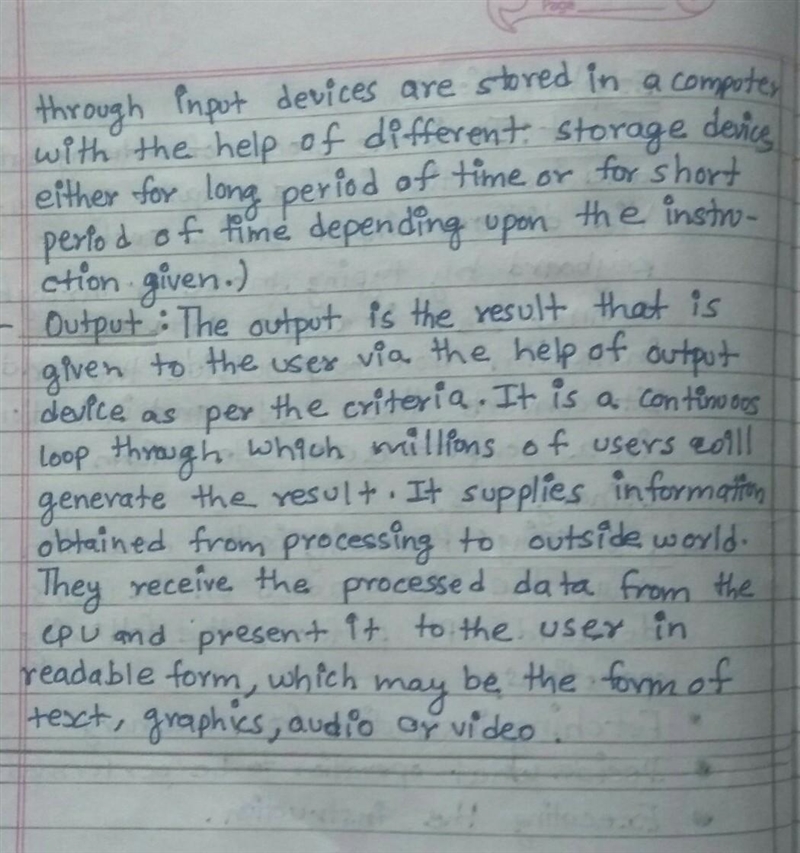 Page
through input devices are stored in a computer
with the help of different storage device
either for long period of time or for short
period of time depending upon the instru-
ction given.)
- Output : The output is the result that is
given to the user via the help of output
device as per the criteria. It is a continuous
loop through which millions of users will
generate the result. It supplies information
obtained from processing to outside world.
They receive the processed data from the
CPU and present it to the user in
readable form, which may be the form of
text, graphics, audio or video.